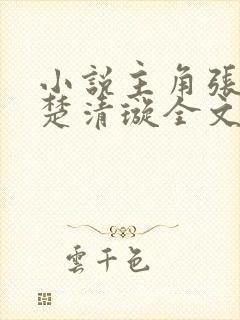 小說主角張
楚清璇全文
雲千色